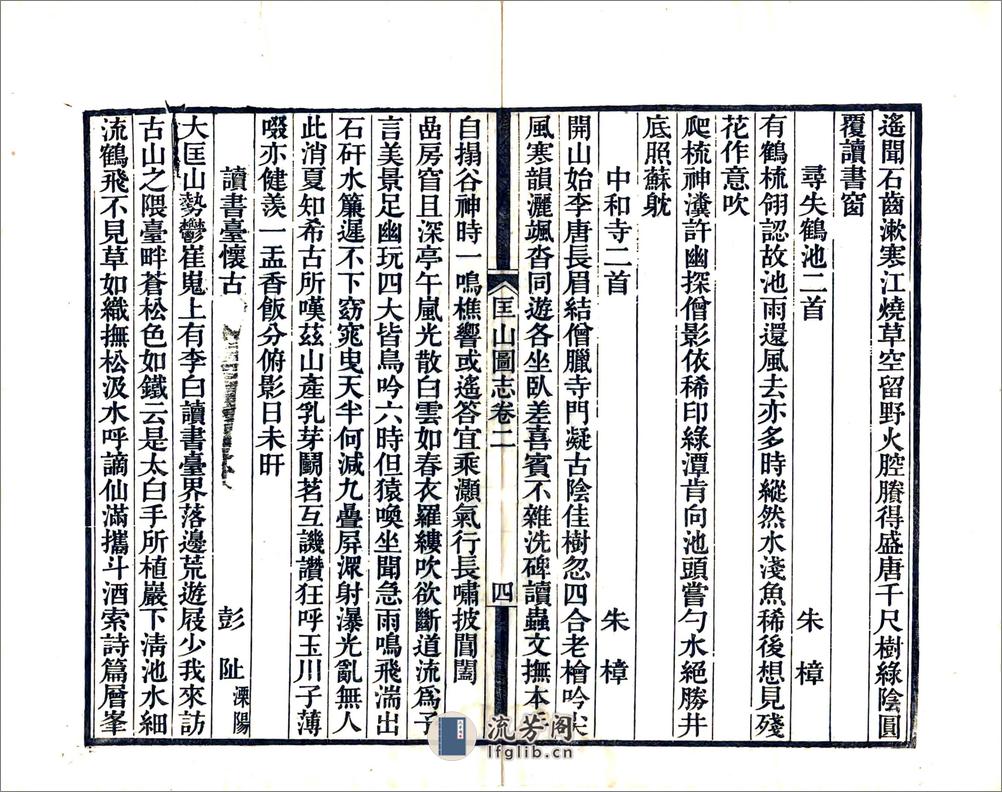 遙聞石齒漱寒江燒草空留野火腔賸得盛唐千尺樹綠陰圓
覆讀書窗
尋失鶴池二首 朱樟
有鶴梳翎認故池雨還風去亦多時縱然水淺魚稀後想見殘
花作意吹
爬梳神瀵許幽探僧影依稀印綠潭肯向池頭嘗勺水絕勝井
底照蘇躭
中和寺二首 朱樟
開山始李唐長眉結僧臘寺門凝古陰佳樹忽四合老檜吟尖
風寒韻灑颯沓同遊各坐臥差喜賓不雜洗碑讀蟲文撫本手
自搨谷神時一鳴樵響或遙答宜乘灝氣行長嘯披閶闔
匡山圖志卷二
四
嵒房窅且深亭午嵐光散白雲如春衣羅縷吹欲斷道流為予
言美景足幽玩四大皆鳥吟六時但猿喚坐聞急雨鳴飛湍出
石矸水簾遲不下窈窕曳天半何減九疊屏濴射瀑光亂無人
此消夏知希古所嘆茲山產乳芽鬭茗互譏讚狂呼玉川子薄
啜亦健羨一盂香飯分俯影日未旰
讀書臺懷古 彭阯 溧陽
大匡山勢鬱崔嵬上有李白讀書臺界落邊荒遊屐少我來訪
古山之隈臺畔蒼松色如鐵云是太白手所植巖下清池水細
流鶴飛不見草如織撫松汲水呼謫仙滿攜斗酒索詩篇層峯
流芳阁
lfglib.cn